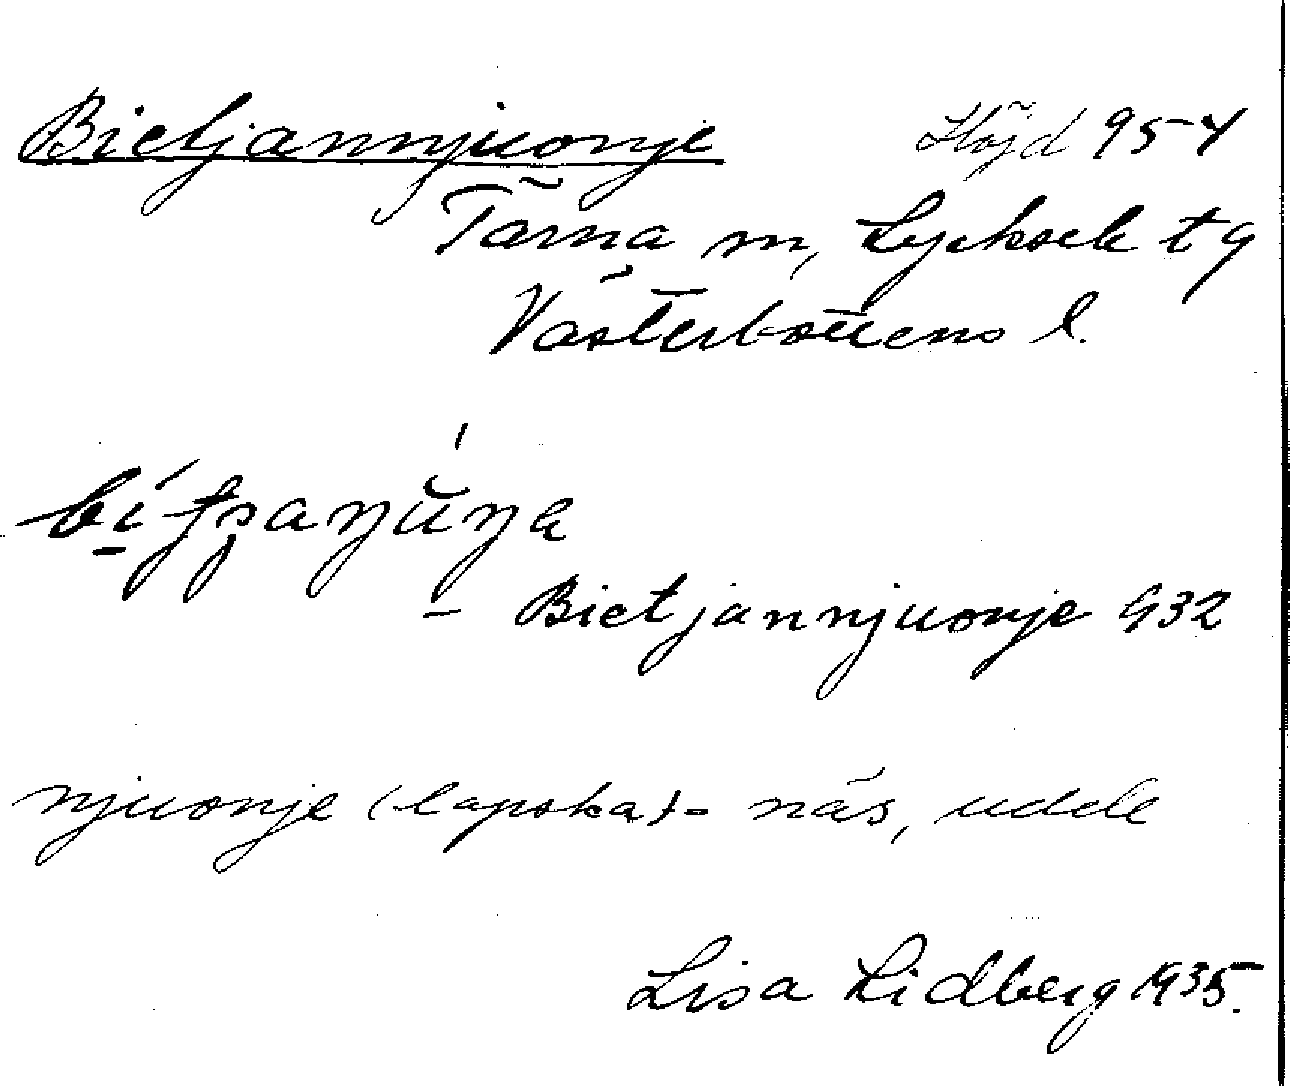 Bietjannjuonje Höjd 954
Tärna sn, Lycksele tg
Västerbottens l.
- Bietjannjuonje 932
njuonje (lapska) = näs, udde
Lisa Lidberg 1935.